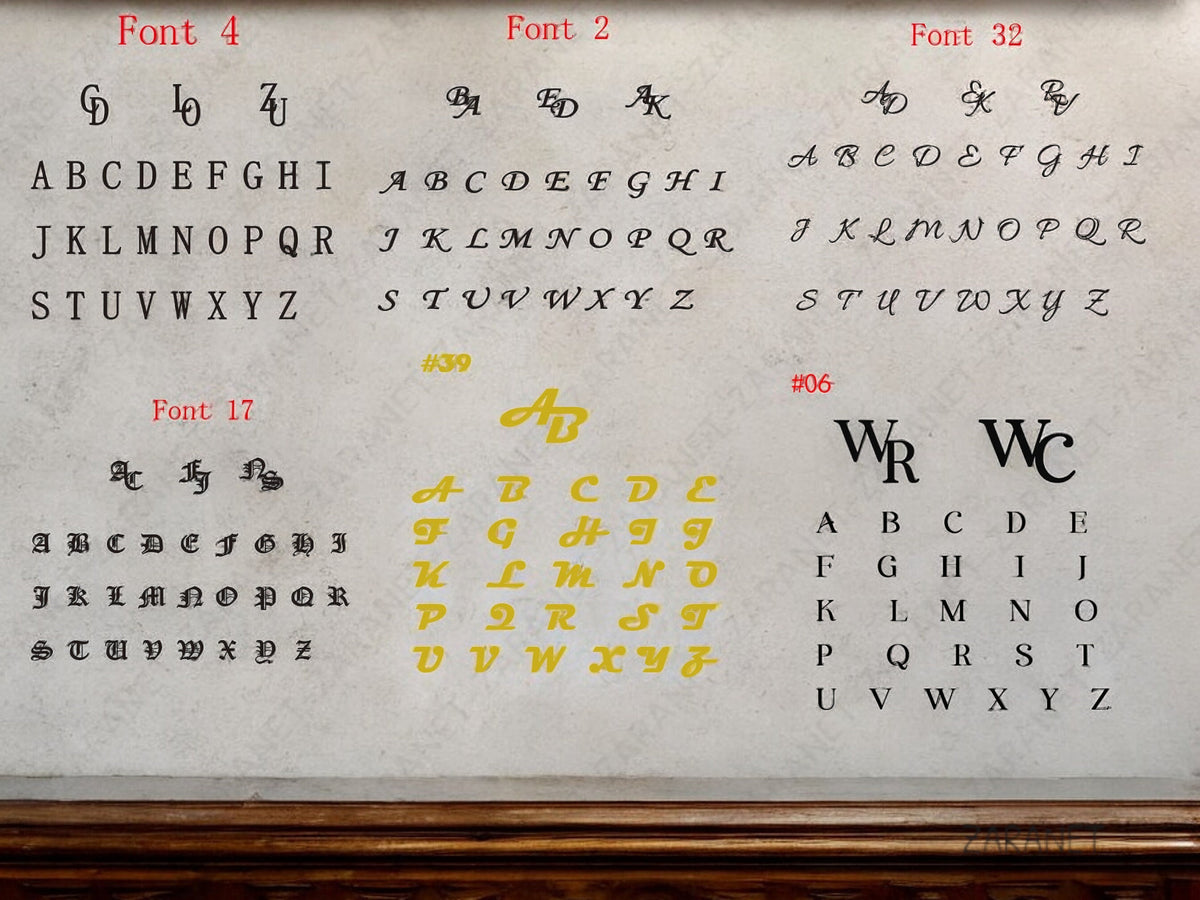 Font 4
GD LO ZU
A B C D E F G H I
J K L M N O P Q R
S T U V W X Y Z
Font 2
BA ED AK
A B C D E F G H I
J K L M N O P Q R
S T U V W X Y Z
Font 32
AD EK RV
A B C D E F G H I
J K L M N O P Q R
S T U V W X Y Z
Font 17
AC FJ NS
A B C D E F G H I
J K L M N O P Q R
S T U V W X Y Z
#39
AB
A B C D E
F G H I J
K L M N O
P Q R S T
U V W X Y Z
#06
WR WC
A B C D E
F G H I J
K L M N O
P Q R S T
U V W X Y Z
ZARANET